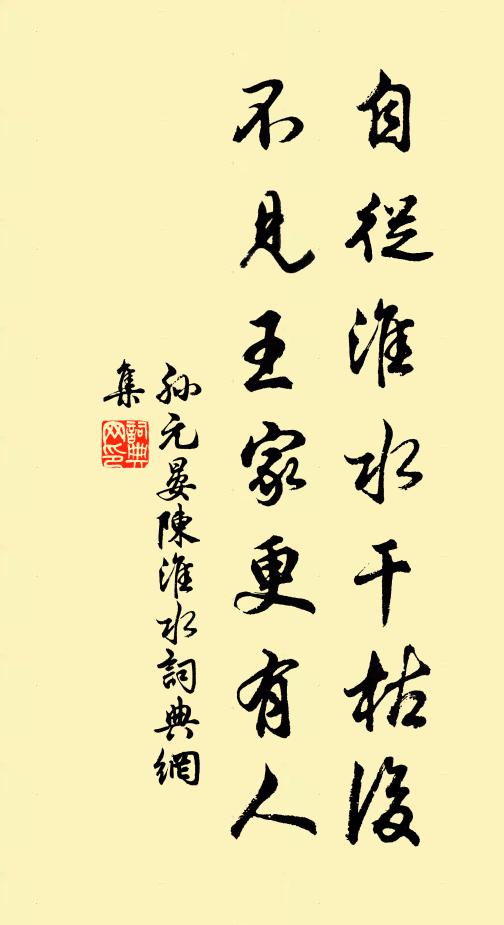 自從淮水干枯後
不見王家更有人
孫元晏陳淮水詞典網
集
詞典
网印